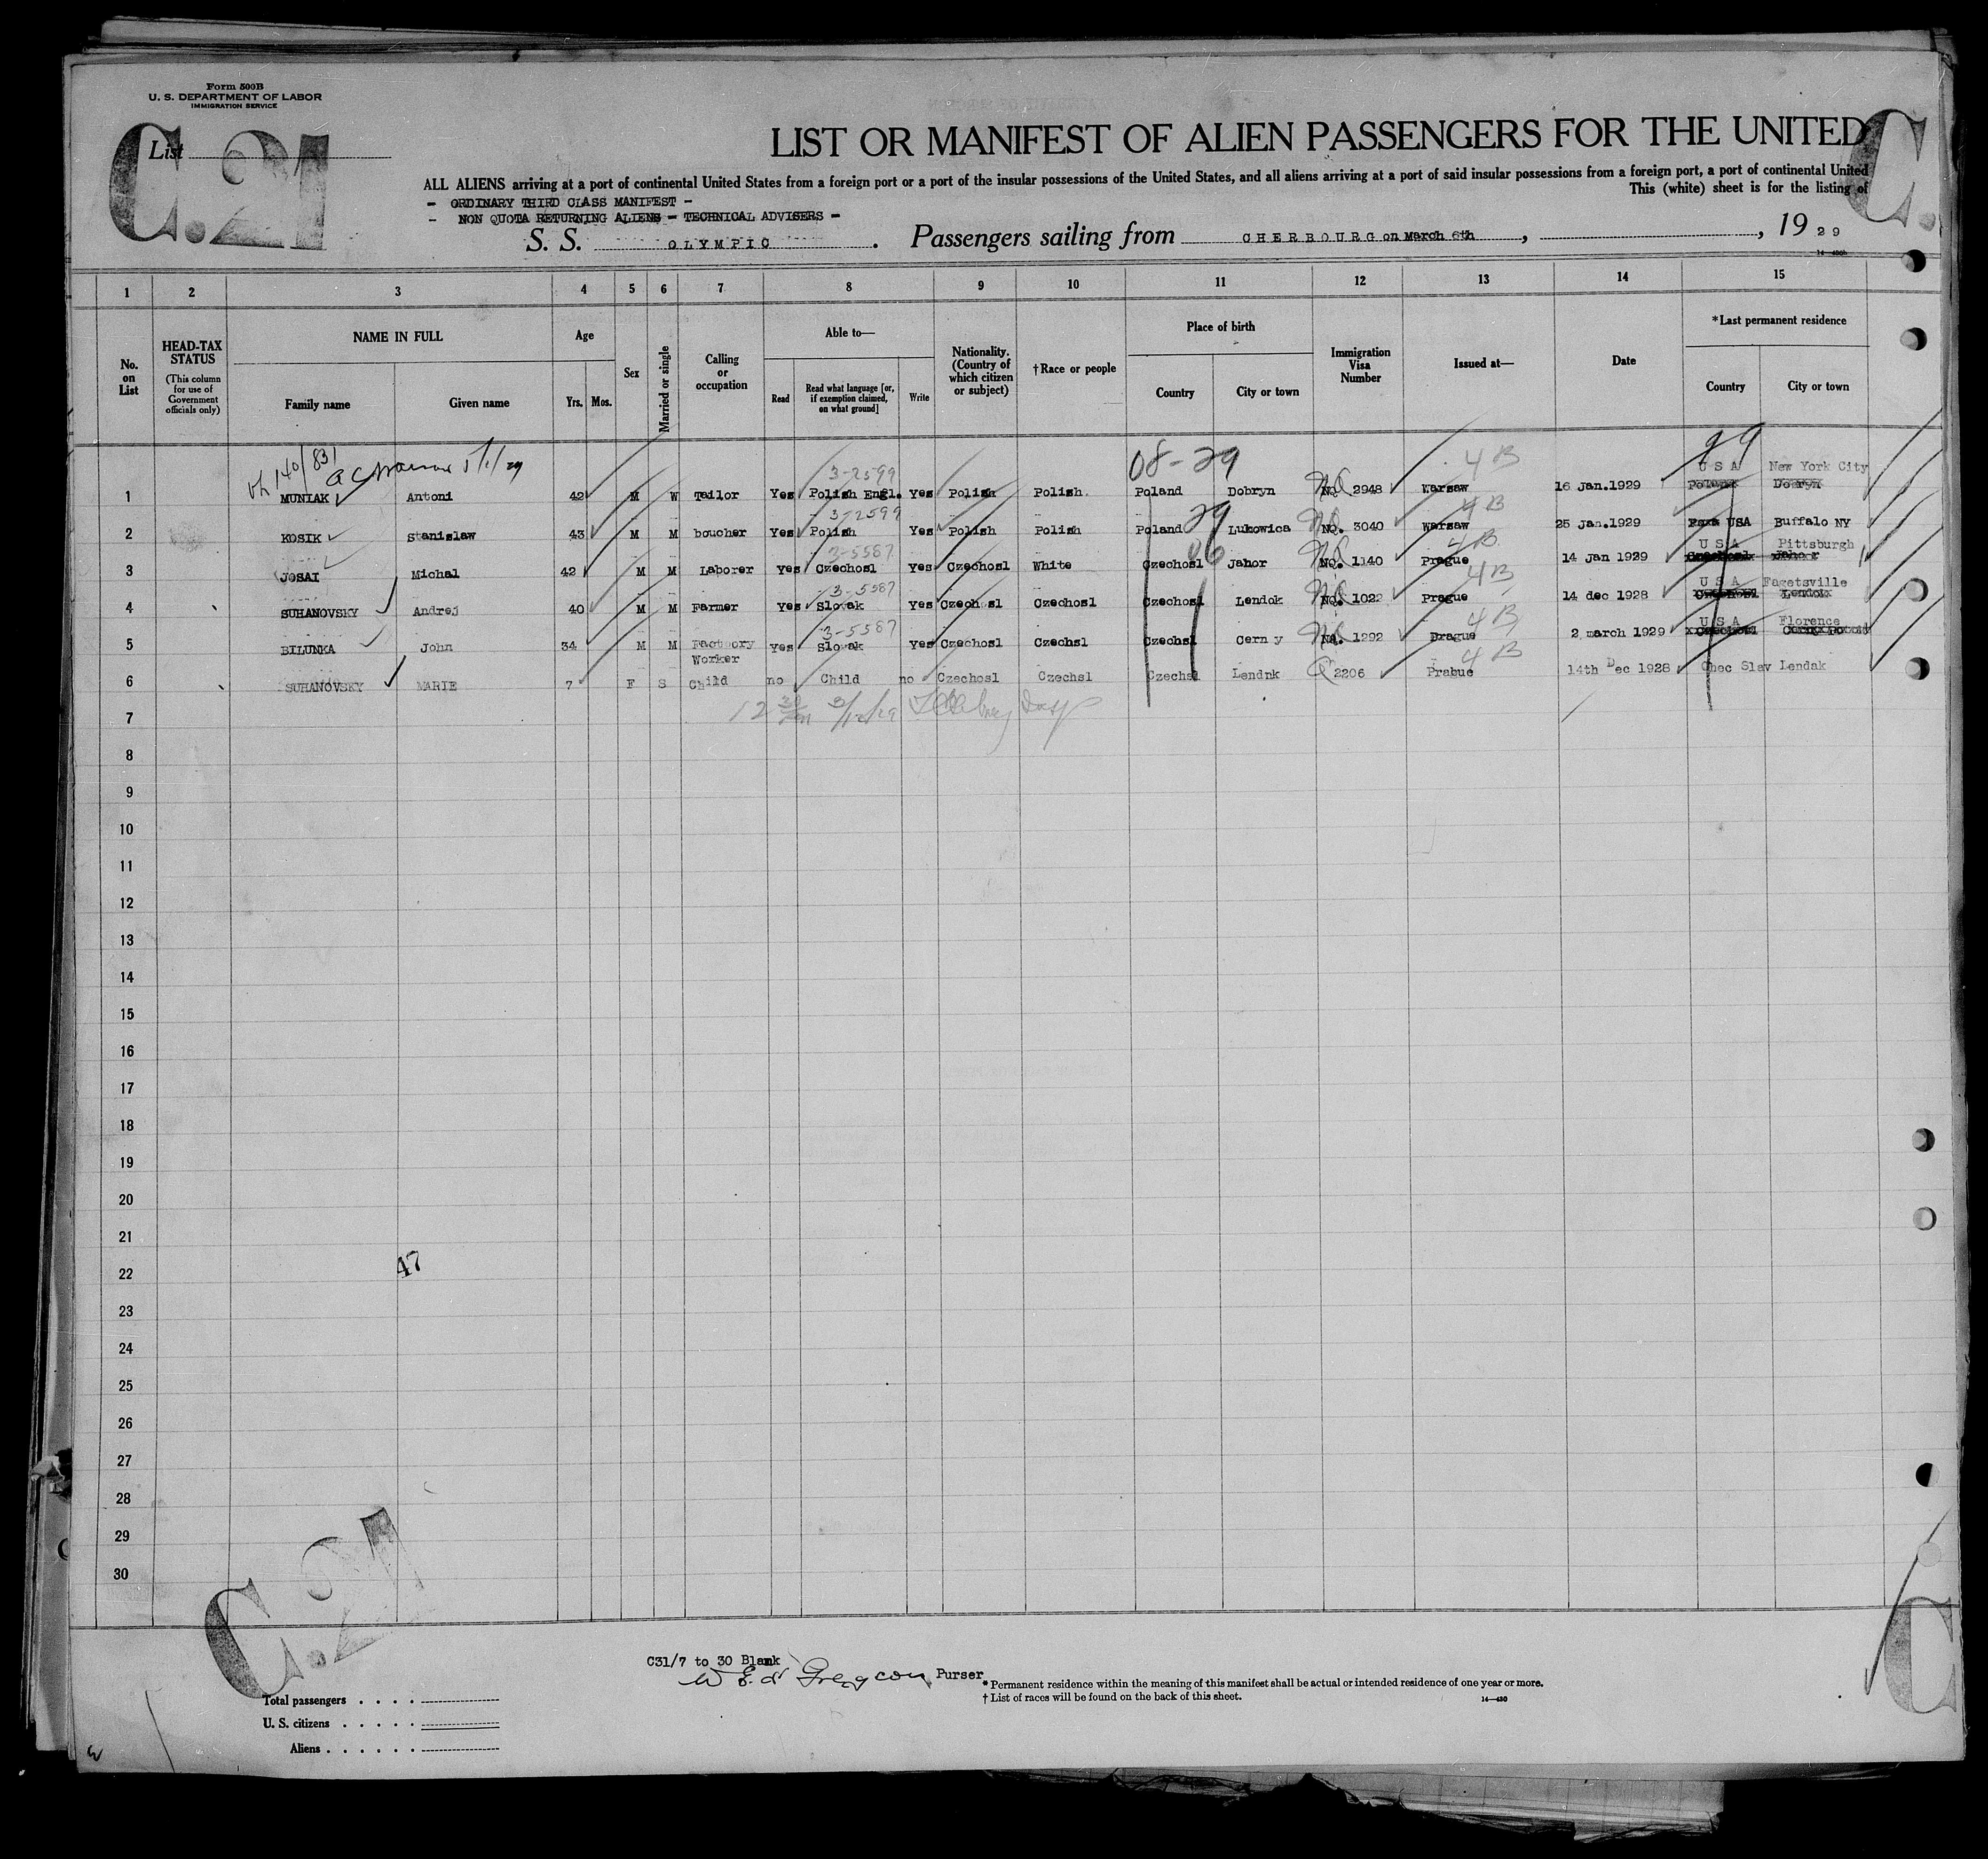 Form 500B
U. S. DEPARTMENT OF LABOR
IMMIGRATION SERVICE
C.21
List
C.
LIST OR MANIFEST OF ALIEN PASSENGERS FOR THE UNITED
ALL ALIENS arriving at a port of continental United States from a foreign port or a port of the insular possessions of the United States, and all aliens arriving at a port of said insular possessions from a foreign port, a port of continental United
This (white) sheet is for the listing of
- ORDINARY THIRD CLASS MANIFEST -
- NON QUOTA RETURNING ALIENS - TECHNICAL ADVISERS -
S. S. OLYMPIC. Passengers sailing from CHERBOURG on March 6th, , 19 29
1 2 3 4 5 6 7 8 9 10 11 12 13 14 15
No. on List
HEAD-TAX STATUS
(This column for use of Government officials only)
NAME IN FULL
Family name Given name
Age
Yrs. Mos.
Sex
Married or single
Calling or occupation
Able to—
Read
Read what language [or, if exemption claimed, on what ground]
Write
Nationality. (Country of which citizen or subject)
†Race or people
Place of birth
Country City or town
Immigration Visa Number
Issued at—
Date
*Last permanent residence
Country City or town
08-29 4B 99
3-2599 USA New York City
1 MUNIAK Antoni 42 M W Tailor Yes Polish Engl. Yes Polish Polish. Poland Dobryn No. 2948 Warsaw 16 Jan.1929 Poland Dobryn
3-2599 29 4B
2 KOSIK Stanislaw 43 M M boucher Yes Polish Yes Polish Polish Poland Lukowica NO. 3040 Warsaw 25 Jan.1929 USA Buffalo NY
3-5587 06 4B USA Pittsburgh
3 JOSAI Michal 42 M M Laborer Yes Czechosl Yes Czechosl White Czechosl Jahor NO. 1140 Prague 14 Jan 1929 Czechosl Jahor
3-5587 4B USA Fagetsville
4 SUHANOVSKY Andrej 40 M M Farmer Yes Slovak Yes Czechosl Czechosl Czechosl Lendok NO. 1022 Prague 14 dec 1928 Czechosl Lendok
3-5587 4B USA Florence
5 BILUNKA John 34 M M Factoory Worker Yes Slovak Yes Czechosl Czechsl Czechsl Cern y NA. 1292 Prague 2 march 1929 Czechosl
4B
6 SUHANOVSKY MARIE 7 F S Child no Child no Czechosl Czechsl Czechsl Lendnk 2206 Prabue 14th Dec 1928 Chec Slav Lendak
7
8
9
10
11
12
13
14
15
16
17
18
19
20
21
22
47
23
24
25
26
27
28
29
30
C.21
C
C31/7 to 30 Blank
Purser
Total passengers
U. S. citizens
Aliens
* Permanent residence within the meaning of this manifest shall be actual or intended residence of one year or more.
† List of races will be found on the back of this sheet.
14—430